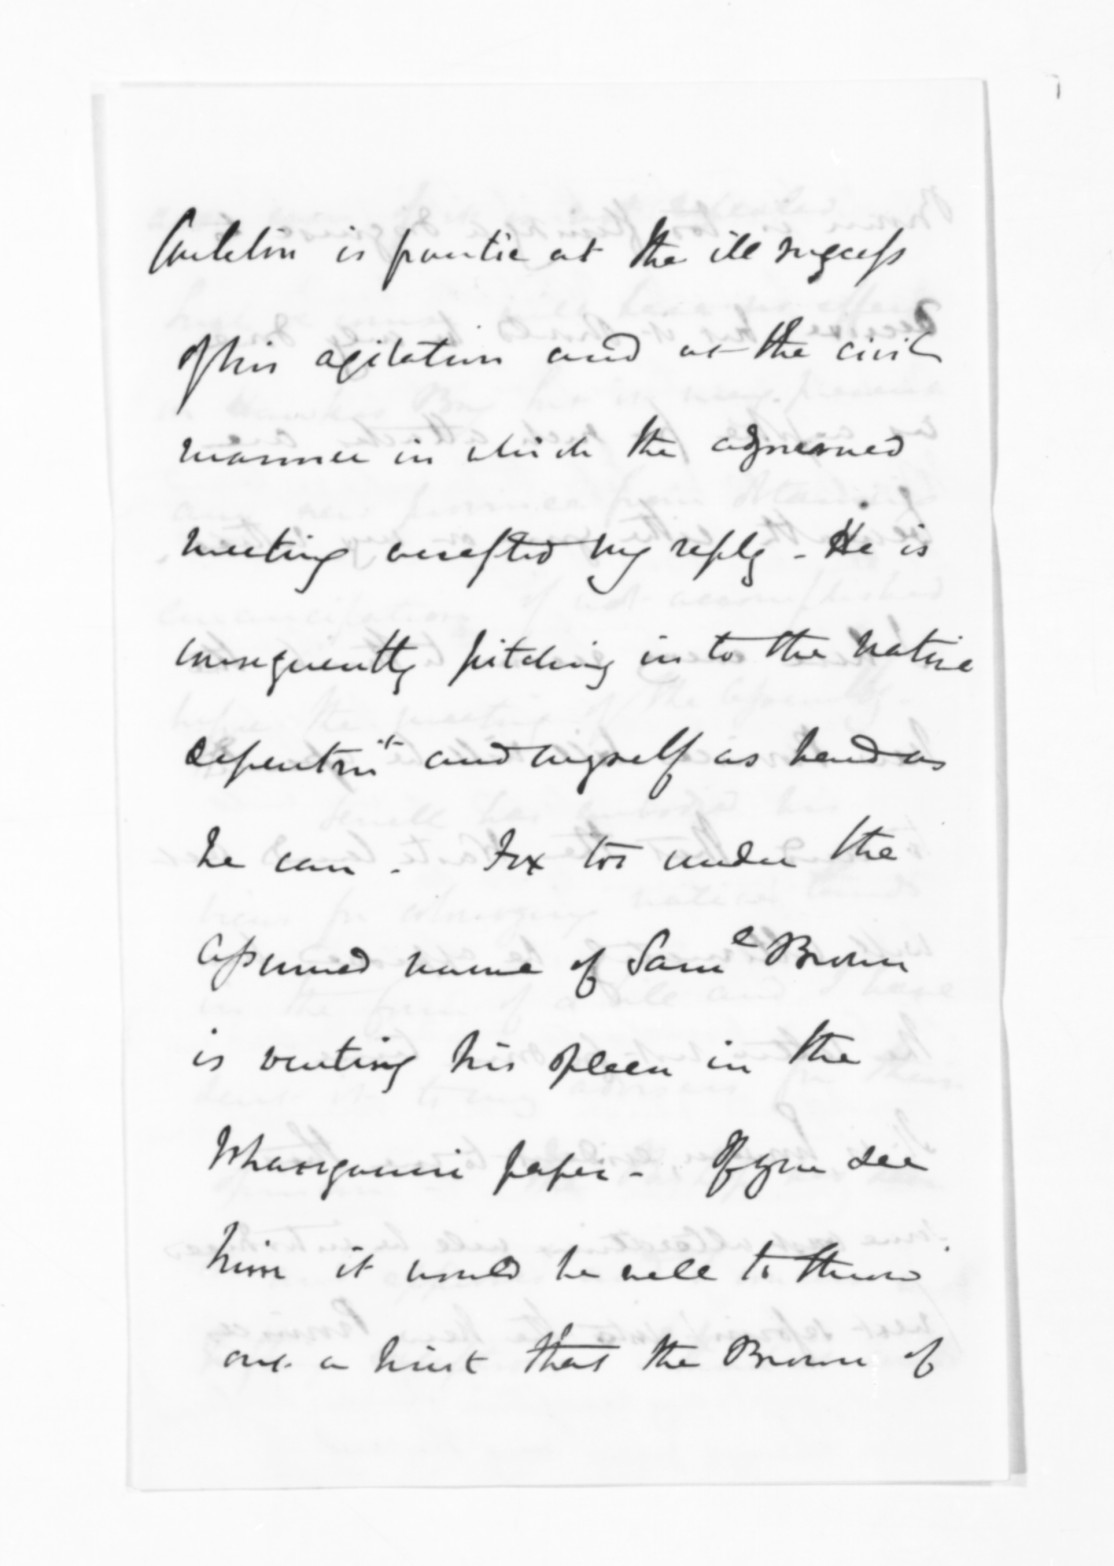 Carleton is frantic at the ill success
of his agitation and at the civil
manner in which the adjourned
meeting accepted my reply - He is
consequently pitching into the native
departmt and myself as hard as
he can - Fox too under the
assumed name of Saml Brown
is venting his spleen in the
Wharganui paper - If you see
him it would be well to throw
out a hint that the Brown of